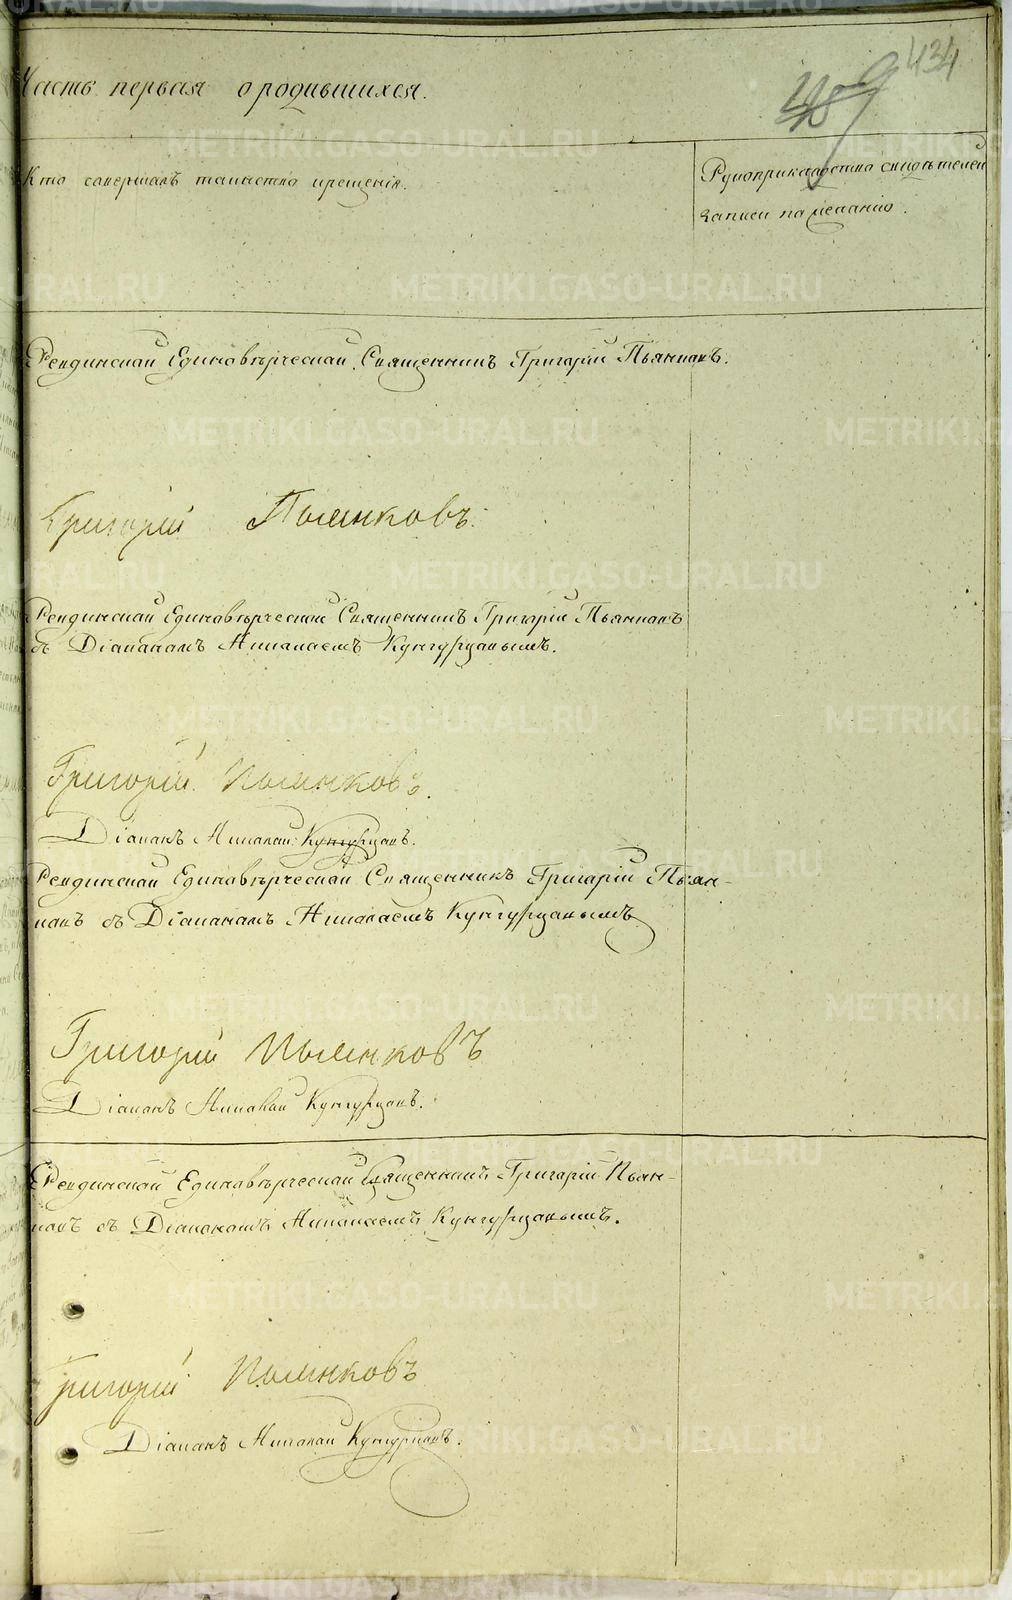 434
Часть первая о родившихся.
Кто совершалъ таинство крещенія.
Рукоприкладство свидѣтелей
записи по желанію.
Ревдинской Единовѣрческой Священникъ Григорій Пьянковъ.
Григорій Пьянковъ.
Ревдинской Единовѣрческой Священникъ Григорій Пьянковъ
съ Діакономъ Николаемъ Кунгурцовымъ.
Григорій Пьянковъ.
Діаконъ Николай Кунгурцовъ.
Ревдинской Единовѣрческой Священникъ Григорій Пьян-
ковъ съ Діакономъ Николаемъ Кунгурцовымъ
Григорій Пьянковъ
Діаконъ Николай Кунгурцовъ.
Ревдинской Единовѣрческой Священникъ Григорій Пьян-
ковъ съ Діакономъ Николаемъ Кунгурцовымъ.
Григорій Пьянковъ
Діаконъ Николай Кунгурцовъ.
METRIKI.GASO-URAL.RU